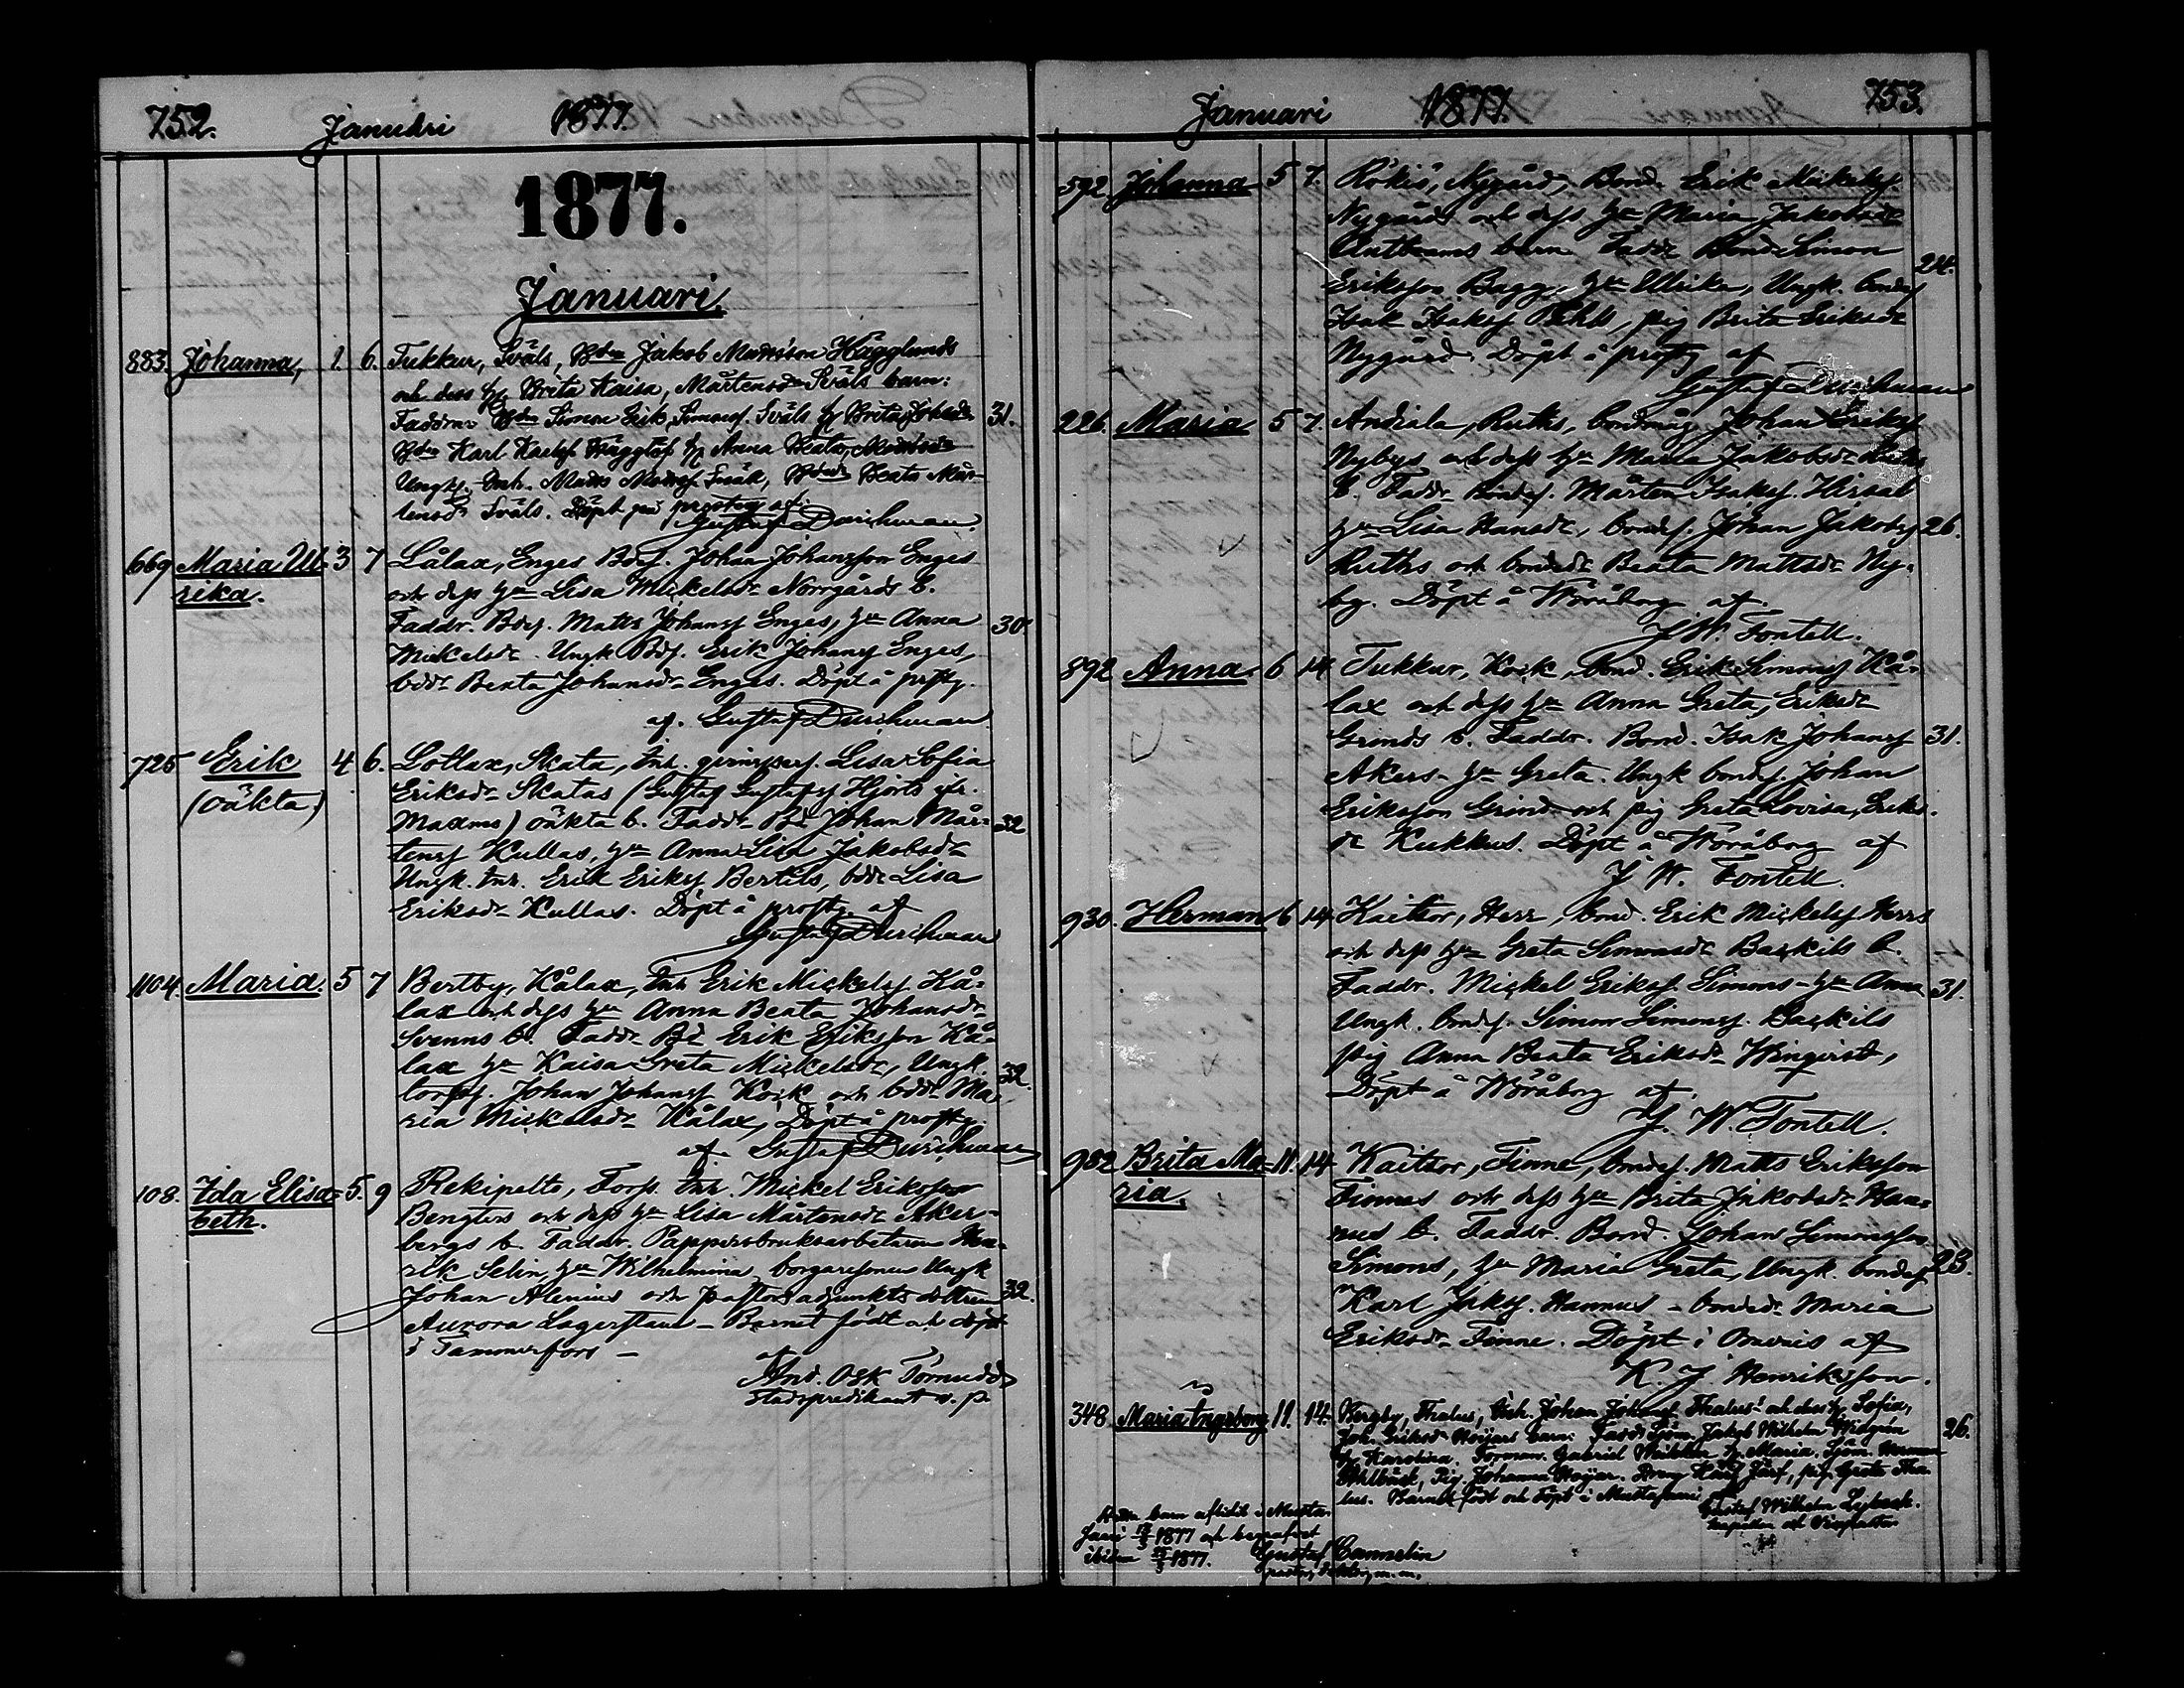 752. Januari 1877.
1877.
Januari.
883. Johanna, 1. 6. Tukkur, Svåls, Bden Jakob Mattsson Hägglunds
och dess h. Brita Kaisa, Mårtensdr Svåls barn:
Faddrar Bden Simon Erik Simonss. Svåls h. Brita Johsdr 31.
Bden Karl Karlss Häggtöf h. Anna Beata
Ungk. Inh. Matts Matss. Bdedr Beata Mår-
tensdr Svåls. Döpt på prostg af
Gustaf Durchman
669 Maria Ul- 3 7 Lålax, Enges Bdes. Johan Johansson Enges
rika. och dess hu Lisa Mickelsdr Norrgårds b.
Faddr. Bdes. Matts Johanss Enges, hu Anna 30.
Mickelsdr. Ungk Bdes. Erik Johanss Enges,
bddr Beata Johansdr Enges. Döpt å prstg.
af. Gustaf Durchman
725 Erik 4 6. Lotlax, Skata, Inh. qvinspers. Lisa Sofia
(oäkta) Eriksdr Skatas (Gustaf Gustafss Hjorts fr.
Maxmo) oäkta b. Faddr Bd Johan Mår- 32
tenss Kullas, hu Anna Lisa Jakobsdr
Ungk. Inh. Erik Erikss Bertils, bddr Lisa
Eriksdr Kullas. Döpt å prostg. af
Gustaf Durchman
1104. Maria. 5 7 Bertby, Kålax, Inh Erik Mickelss Kå-
lax och dess hu Anna Beata Johansdr
Svenns b. Faddr Bd Erik Eriksson Kå-
lax hu Kaisa Greta Mickelsdr, Ungk. 32.
torps. Johan Johanss Koik och bddr Ma-
ria Mickelsdr Kålax, Döpt å prostg.
af Gustaf Durchman
108. Ida Elisa- 5. 9 Rekipelto, Torp. Inh. Mickel Eriksson
beth. Bengters och dess hu Lisa Mårtensdr Åker-
bergs b. Faddr. Pappersbruksarbetaren Hen-
rik Selin, hu Wilhelmina, borgaresonen Ungk
Johan Alenius och pastorsadjunkts dottren 32.
Aurora Lagerstam – Barnet födt och döpt
i Tammerfors –
af
And. Osk Törnudd
Stadspredikant v. p.
Januari 1877. 753.
592 Johanna 5 7. Rökiö, Nygård, Bond. Erik Mickelss.
Nygård och dess hu Maria Jakobsdr
barn Faddr Bond Simon 24.
Eriksson Bagg, hu Ulrika, Ungk. bondes
Isak Isakss, pig Brita Eriksdr
Nygård. Döpt å prostg af
Gustaf Durchman
226. Maria 5 7. Andiala, Ruths, bondmåg Johan Erikss
Nybys och dess hu Maria Jakobsdr Ruths
b. Faddr. Bondes. Mårten Isakss. Hirsal
hu Lisa Hansdr, bondes. Johan Jakobss 26.
Ruths och bondedr Beata Mattsdr Ny-
by. Döpt å Wöråborg af
J. W. Fontell.
892 Anna. 6 14 Tukkur, Koik, bond. Erik Simonss Kå-
lax och dess hu Anna Greta, Eriksdr
Grinds b. Faddr. Bond. Isak Johanss 31.
Akers – hu Greta. Ungk bondes. Johan
Eriksson Grind och pig Greta Lovisa, Eriks-
dr Kukkus. Döpt å Wöråborg af
J W. Fontell.
930. Herman 6 14 Kaitsor, Herr, bond. Erik Mickelss Herrs
och dess hu Greta Simonsdr Backils b.
Faddr. Mickel Erikss. Simons – hu Anna 31.
Ungk. bondes. Simon Simonss. Backils
pig Anna Beata Eriksdr Winqvist,
Döpt å Wöråborg af.
J. W. Fontell.
982 Brita Ma- 11. 14. Kaitsor, Finne, bondes. Matts Eriksson
ria. Finnes och dess hu Brita Jakobsdr Han-
nus b. Faddr. Bond. Johan Simonsson
Simons, hu Maria Greta, Ungk. bondes 23.
Karl Jakss. Hannus – bondedr. Maria
Eriksdr Finne. Döpt i Oravais af
K. J. Henriksson.
348 Maria Ingeborg 11. 14. Bergby, Thalus, Inh. Johan Johanss. Thalus' och dess h. Sofia,
Joh. Eriksdr Höijers barn: Faddr Sjöm. Jakob Wilhelm Widgrén 26.
h. Karolina. Forman. Gabriel h. Maria. Sjöm. Herman
Ahlbäck, Pig. Johanna Höijer. Dreng Karl, pig. Greta Tha-
lus. Barnet födt och döpt i Mustasaari af
Gustaf Wilhelm
kapellan
barn aflidit i Musta-
saari 1877 och begrafvet
ibidem 1877. Gustaf Cannelin
pastor,